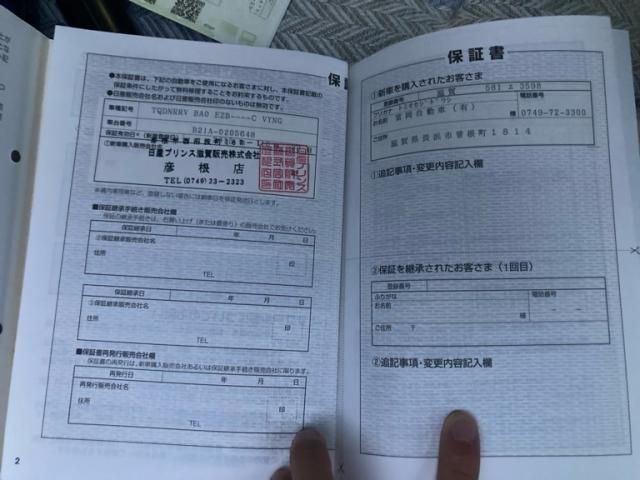 保証書
●本保証書は、下記の自動車をご使用になるお客さまに対し、本保証書記載の
保証条件にしたがって無料修理することをお約束するものです。
●日産販売会社名および日産販売会社印のないものは無効です。
車種記号
TQDNRRV BA0 EZB----C VYNG
車台番号
B21A-0205648
保証有効日
日産プリンス滋賀販売株式会社
彦根店
TEL(0749)23-2323
■保証継承手続き販売会社欄
保証継承日 年 月 日
②保証継承販売会社名
住所
印
TEL
保証継承日 年 月 日
③保証継承販売会社名
住所
印
TEL
■保証書再発行販売会社欄
保証書の再発行は、新車購入販売会社あるいは保証継承販売会社に限ります。
再発行日 年 月 日
再発行販売会社名
住所
印
TEL
2
保証書
①新車を購入されたお客さま
登録番号 滋賀 581 エ 3598
電話番号
フリガナ
お名前 富岡自動車(有)
0749-72-3300
滋賀県長浜市曽根町1814
①追記事項・変更内容記入欄
②保証を継承されたお客さま(1回目)
登録番号
ふりがな
お名前
様
電話番号
ご住所 〒
②追記事項・変更内容記入欄